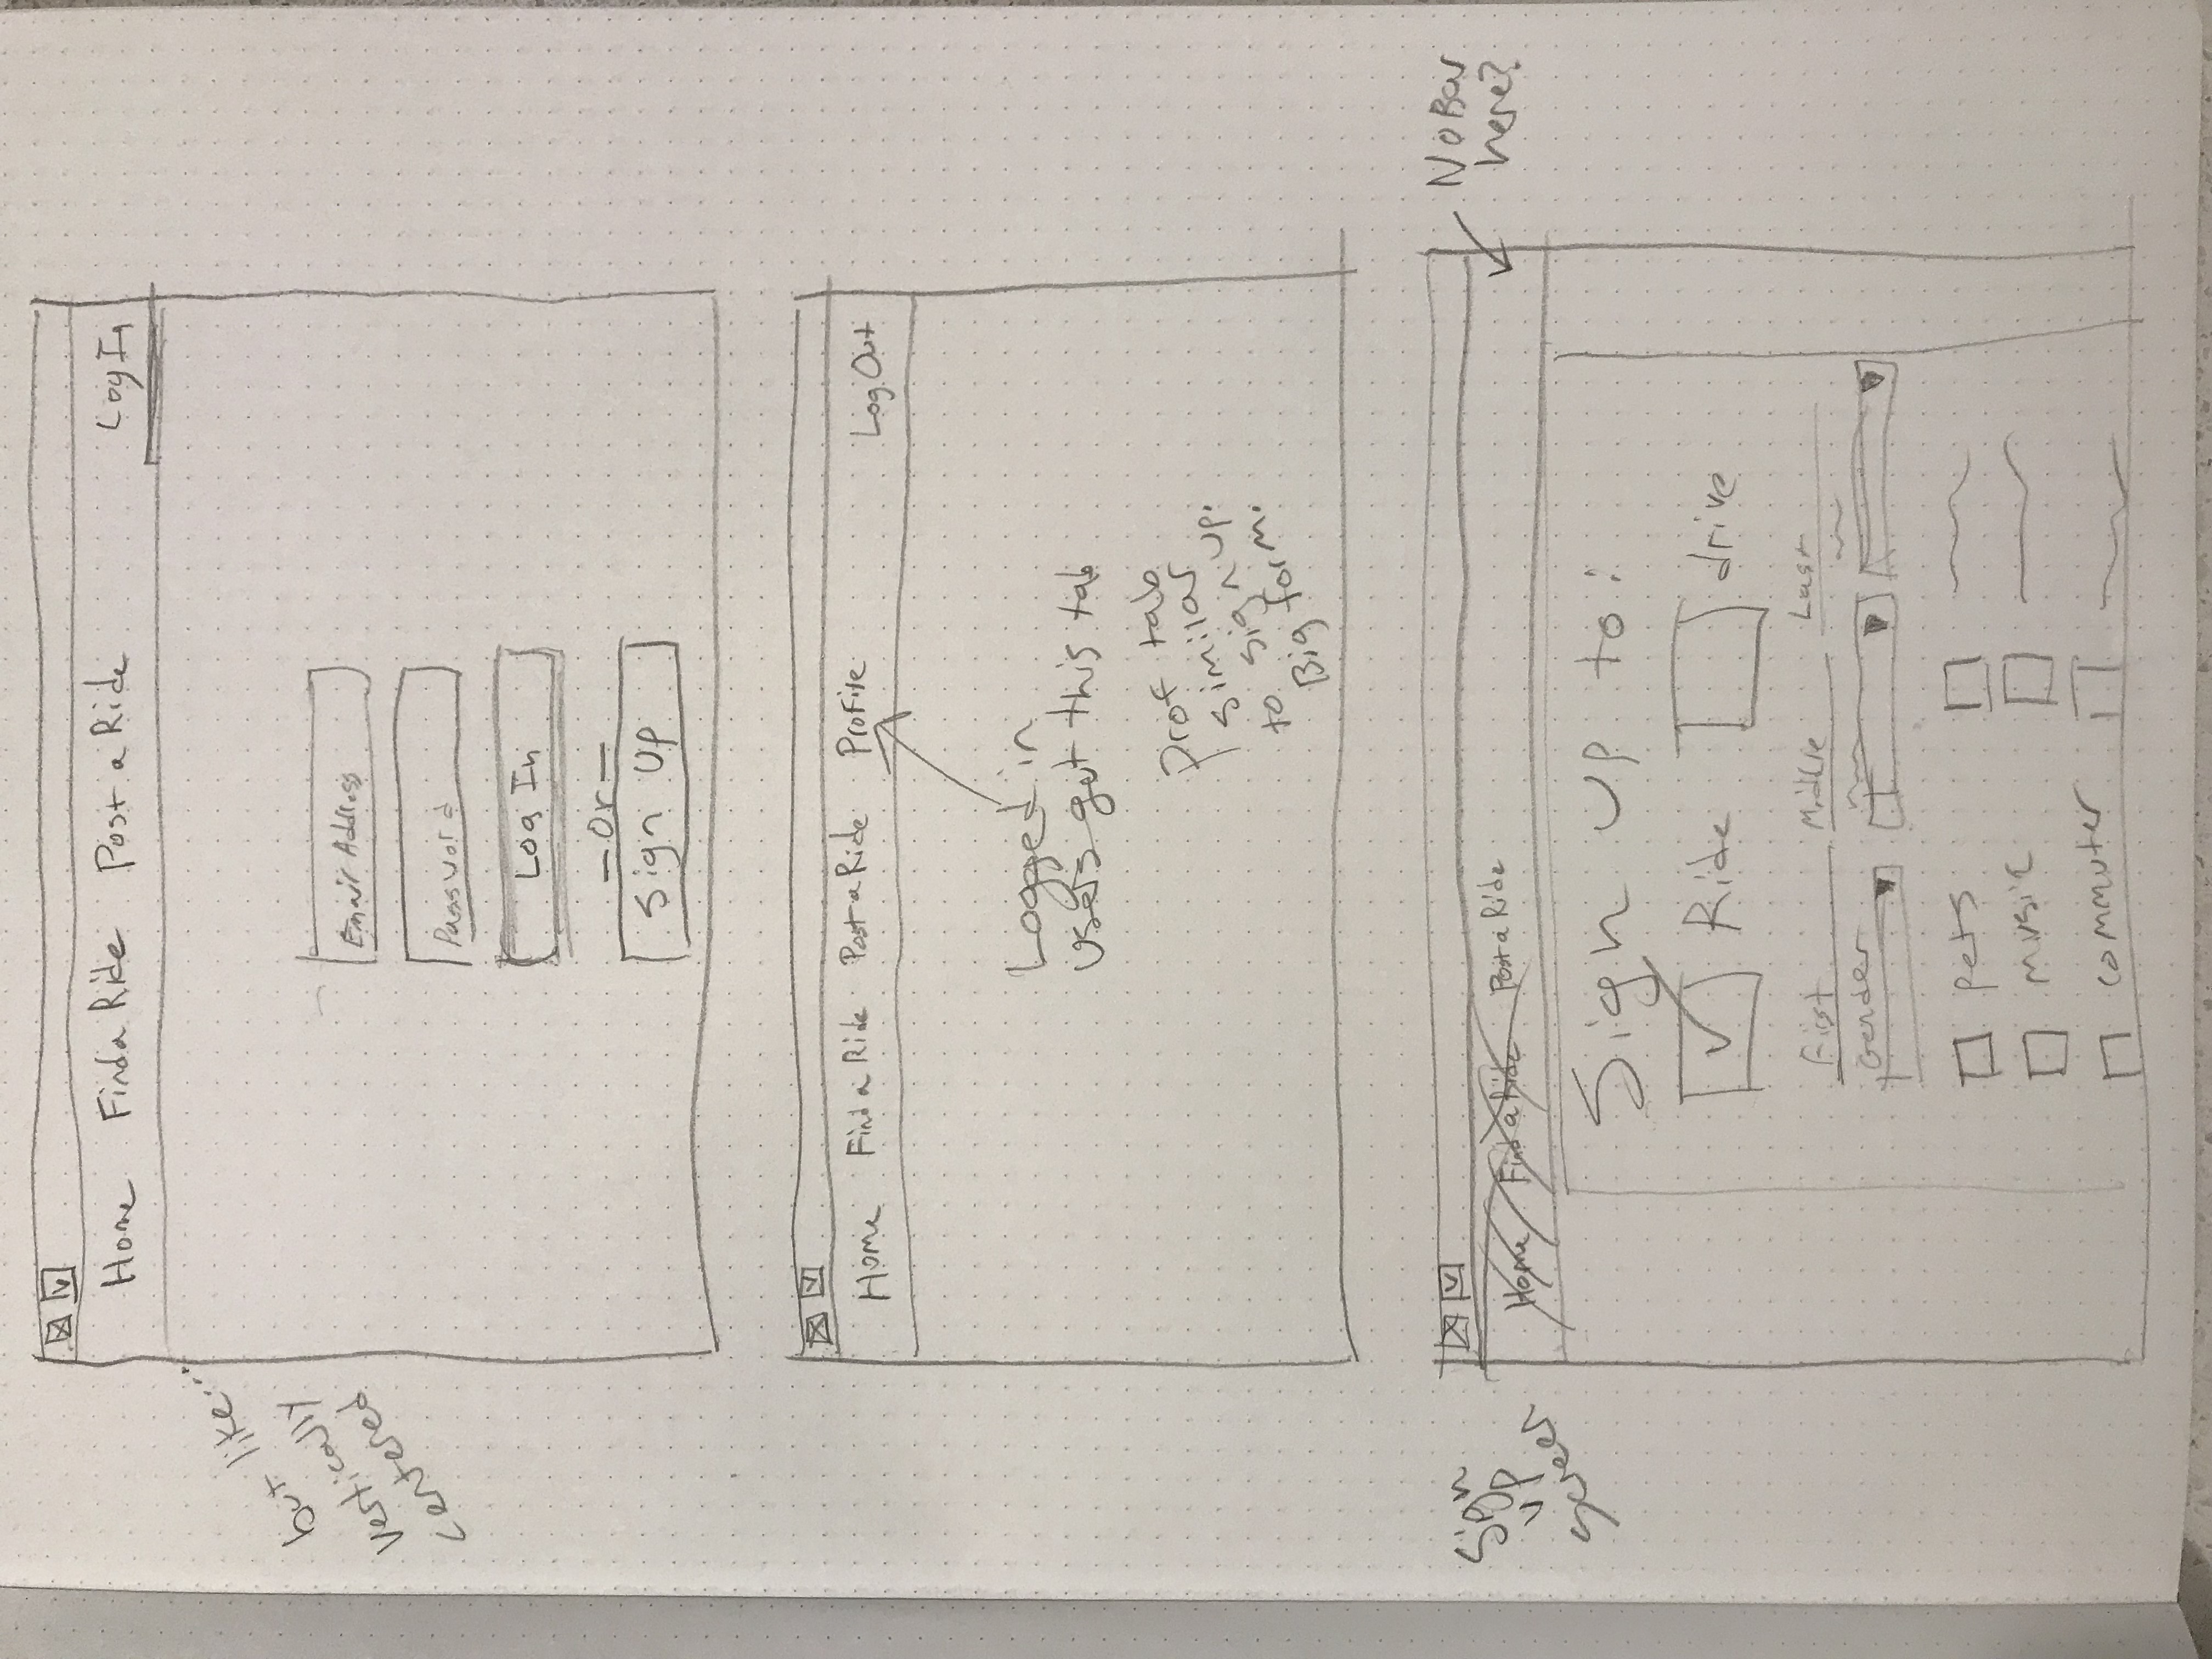 Home Find a Ride Post a Ride Log In
but like...
vertically
centered
Email Address
Password
Log In
— Or —
Sign Up
Home Find a Ride Post a Ride Profile Log Out
Logged in
users get this tab
Prof tab
similar
to sign up.
Big form.
Sign
up
screen
No Bar
here?
Home Find a Ride Post a Ride
Sign up to:
Ride drive
First Middle Last
Gender
pets
music
commuter